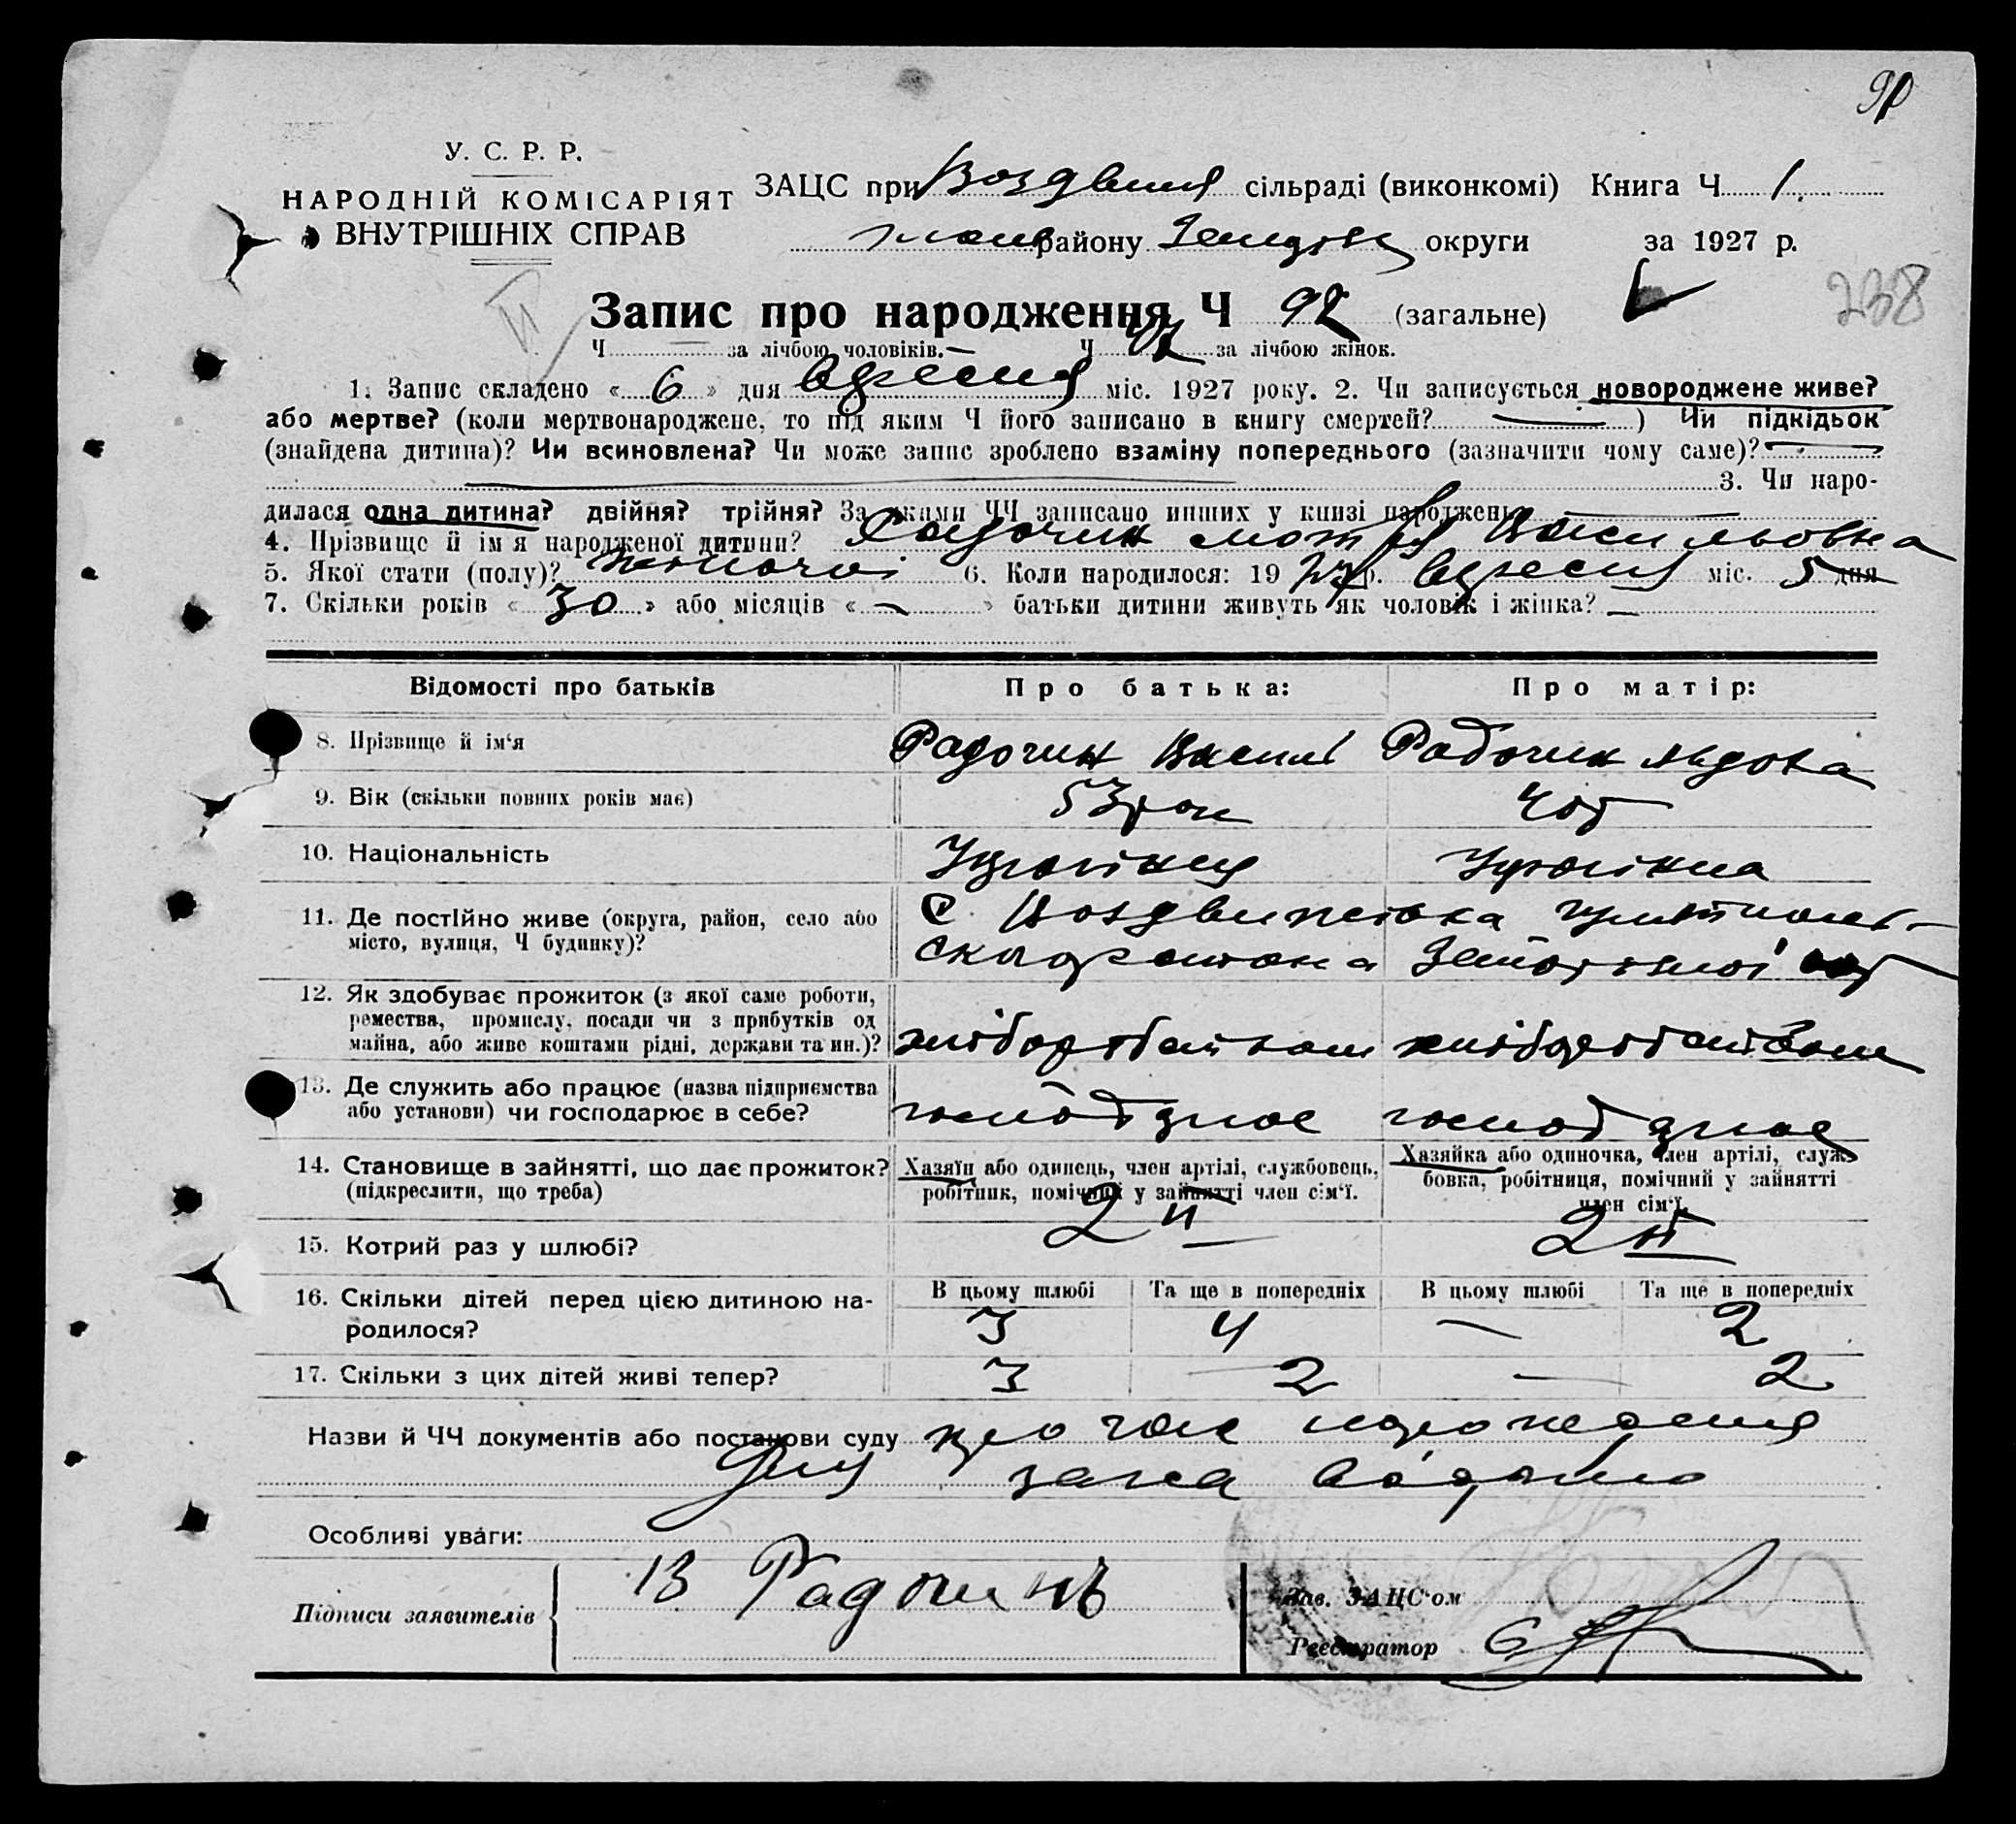 90
У. С. Р. Р.
НАРОДНІЙ КОМІСАРІЯТ
ВНУТРІШНІХ СПРАВ
ЗАЦС при сільраді (виконкомі) Книга Ч 1.
району округи за 1927 р.
238
Запис про народження Ч 92 (загальне)
Ч — за лічбою чоловіків. Ч за лічбою жінок.
1. Запис складено « 6 » дня вересня міс. 1927 року. 2. Чи записується новороджене живе?
або мертве? (коли мертвонароджене, то під яким Ч його записано в книгу смертей? — ) Чи підкідьок
(знайдена дитина)? Чи всиновлена? Чи може запис зроблено взаміну попереднього (зазначити чому саме)? —
3. Чи наро-
дилася одна дитина? двійня? трійня? За якими ЧЧ записано инших у книзі народжень —
4. Прізвище й ім'я народженої дитини? Радочин Мотря Васильовна
5. Якої стати (полу)? жіночої 6. Коли народилося: 19 27 р. вересня міс. 5 дня
7. Скільки років « 30 » або місяців « — » батьки дитини живуть як чоловік і жінка? —
Відомості про батьків Про батька: Про матір:
8. Прізвище й ім'я Радочин Василь Радочин Явдоха
9. Вік (скільки повних років має) 53 рок
10. Національність Українця Українка
11. Де постійно живе (округа, район, село або С. Воздвиженська
місто, вулиця, Ч будинку)? району
12. Як здобуває прожиток (з якої саме роботи,
ремества, промислу, посади чи з прибутків од
майна, або живе коштами рідні, держави та ин.)? хліборобством хліборобством
13. Де служить або працює (назва підприємства
або установи) чи господарює в себе?
14. Становище в зайнятті, що дає прожиток? Хазяїн або одинець, член артілі, службовець, Хазяйка або одиночка, член артілі, служ-
(підкреслити, що треба) робітник, помічний у зайнятті член сім'ї. бовка, робітниця, помічний у зайнятті
член сім'ї.
15. Котрий раз у шлюбі? 2й 2й
16. Скільки дітей перед цією дитиною на- В цьому шлюбі Та ще в попередніх В цьому шлюбі Та ще в попередніх
родилося? 3 4 — 2
17. Скільки з цих дітей живі тепер? 3 2 — 2
Назви й ЧЧ документів або постанови суду про
Особливі уваги:
Підписи заявителів В Радочинъ
Зав. ЗАЦС'ом
Реєстратор